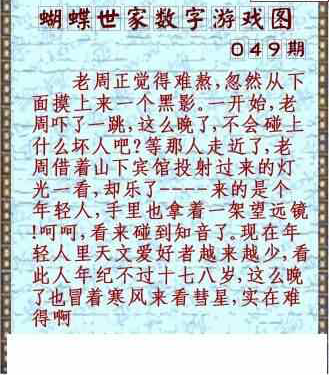 蝴蝶世家数字游戏图
049期
老周正觉得难熬,忽然从下
面摸上来一个黑影。一开始,老
周吓了一跳,这么晚了,不会碰上
什么坏人吧?等那人走近了,老
周借着山下宾馆投射过来的灯
光一看,却乐了----来的是个
年轻人,手里也拿着一架望远镜
!呵呵,看来碰到知音了。现在年
轻人里天文爱好者越来越少,看
此人年纪不过十七八岁,这么晚
了也冒着寒风来看彗星,实在难
得啊